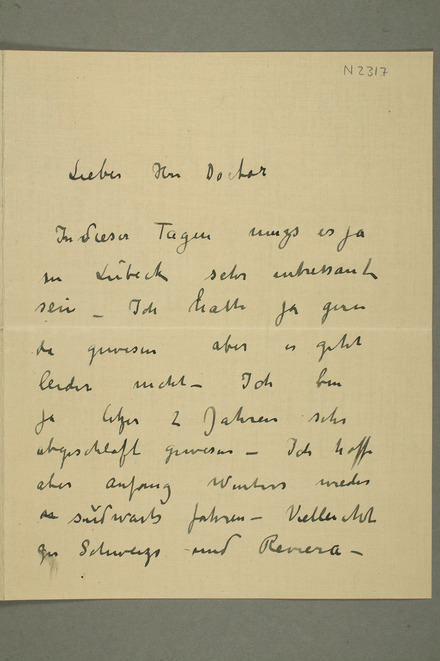 N 2317
Lieber Herr Doctor
In dieser Tagen mugs es ja
in Lübeck sehr intressant
sein – Ich hatte ja gern
da gewesen aber es geht
leider nicht – Ich bin
ja letzer 2 Jahren sehr
abgeschlaft gewesen – Ich hoffe
aber anfang Winters wieder
südwarts fahren – Vielleicht
zu Schweizs und Reviera –